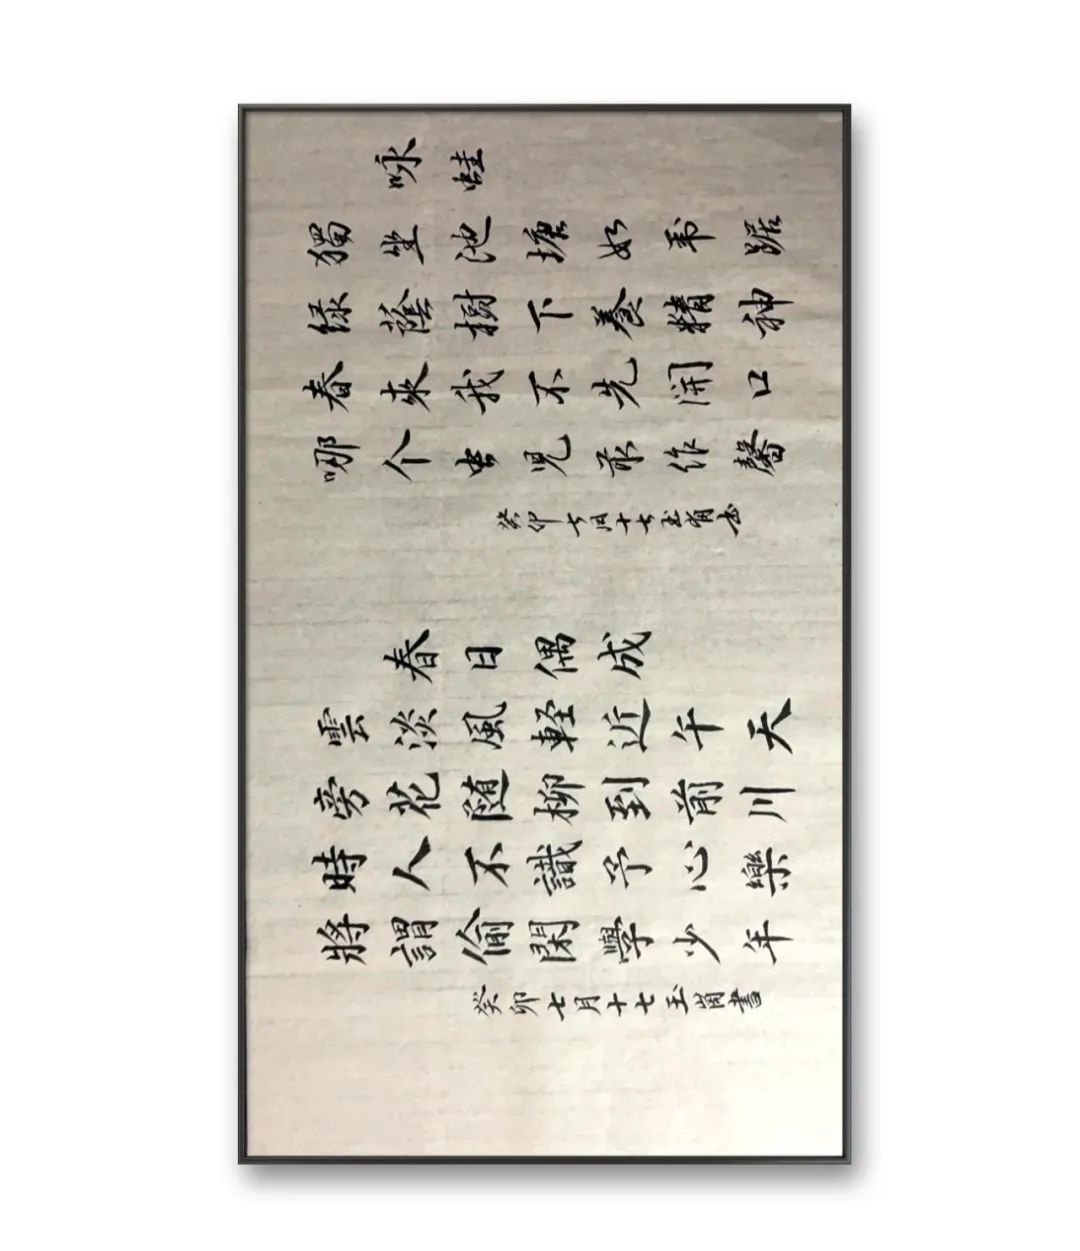 咏蛙
獨坐池塘如虎踞
绿蔭樹下養精神
春來我不先開口
哪个虫児敢作聲
癸卯七月十七玉崗书
春日偶成
雲淡風軽近午天
旁花随柳到前川
時人不識予心樂
將謂偷閑學少年
癸卯七月十七玉崗書